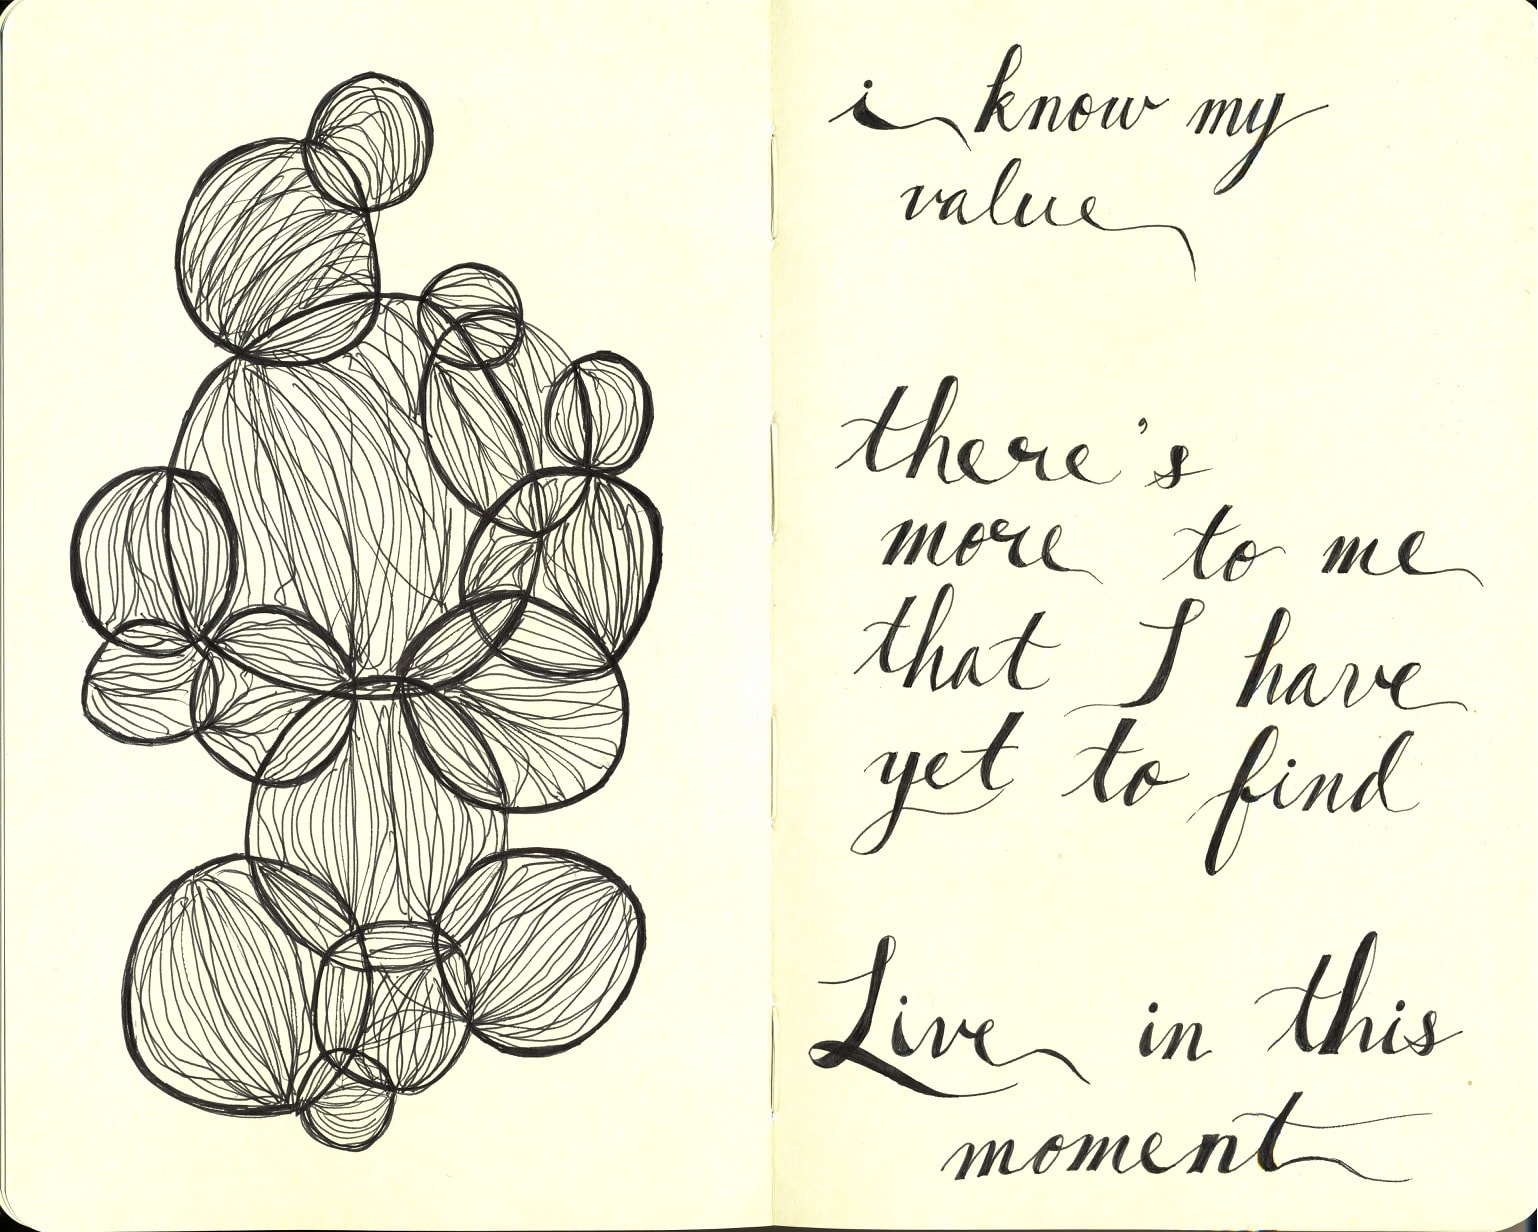 i know my
value
there's
more to me
that I have
yet to find
Live in this
moment